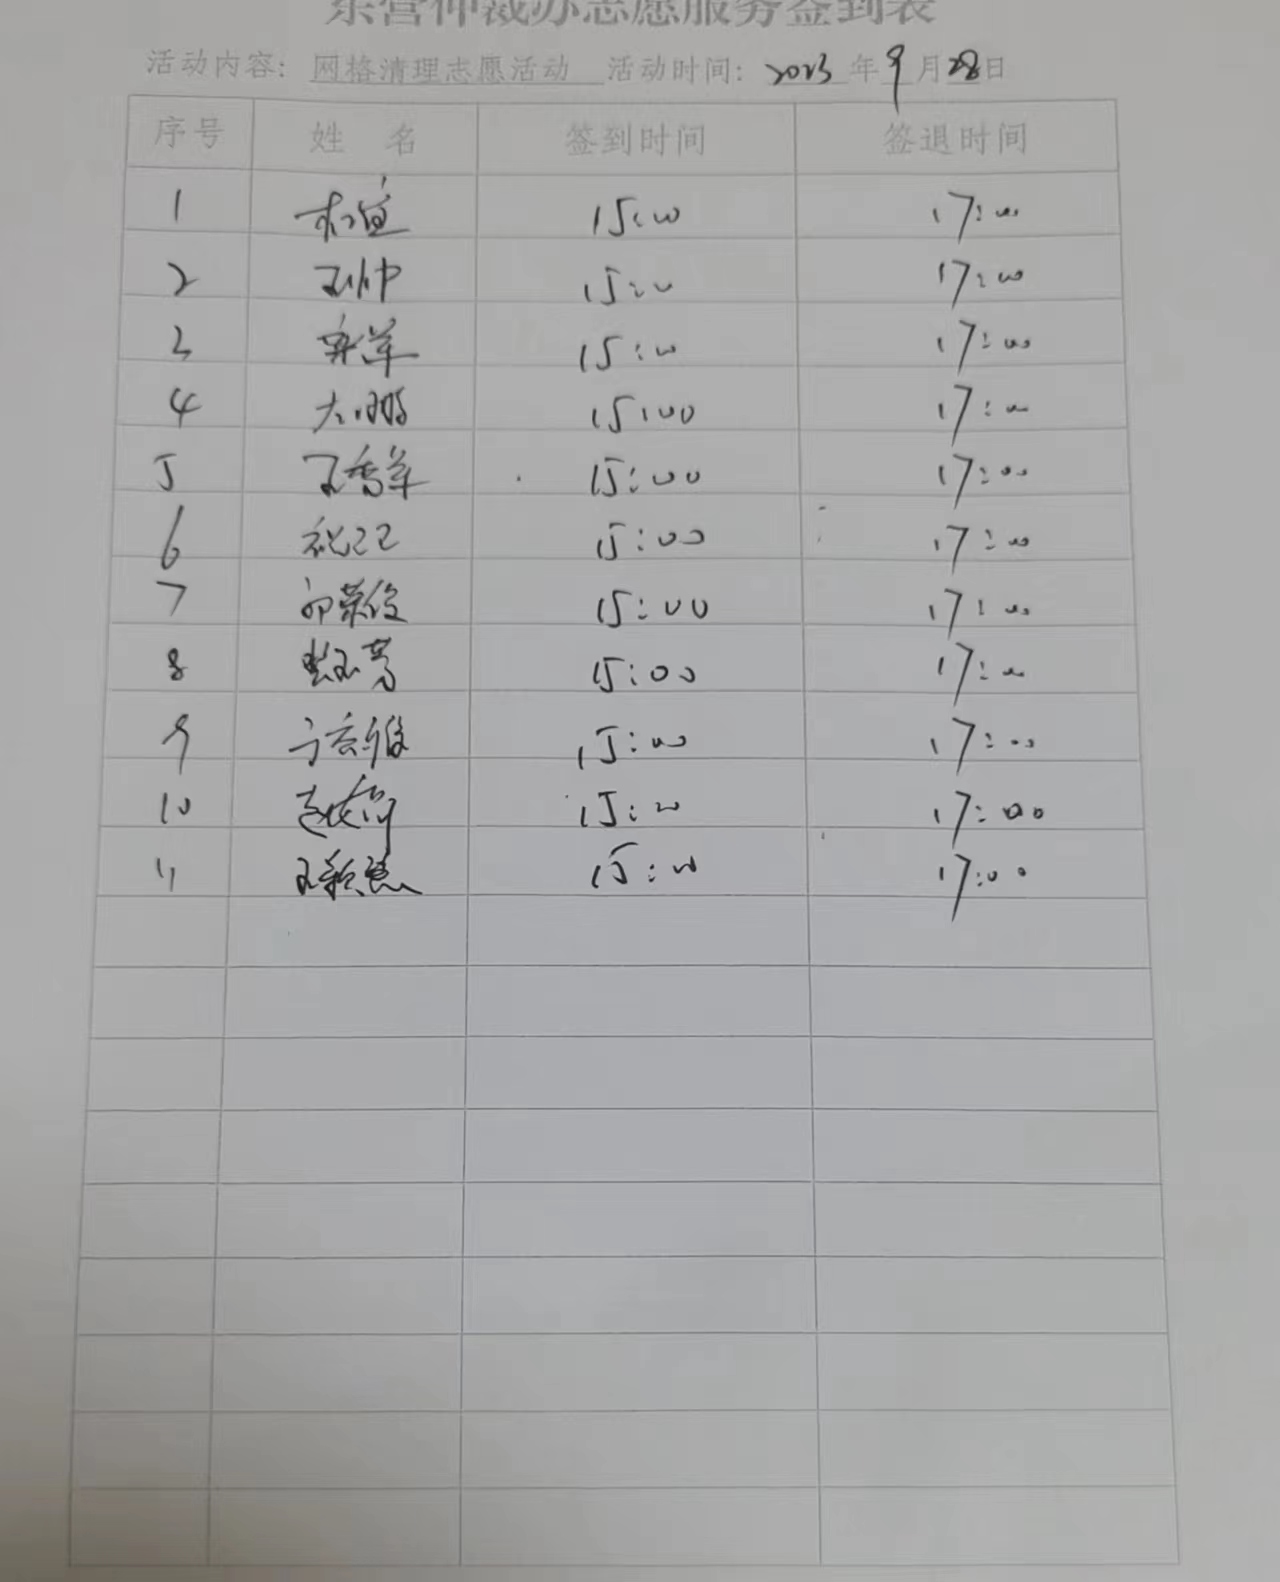 东营仲裁办志愿服务签到表
活动内容: 网格清理志愿活动 活动时间: 2023年9月28日
序号 姓 名 签到时间 签退时间
1 15:00 17:00
2 王帅 15:00 17:00
3 15:00 17:00
4 15:00 17:00
5 王香苹 15:00 17:00
6 15:00 17:00
7 15:00 17:00
8 15:00 17:00
9 15:00 17:00
10 15:00 17:00
11 15:00 17:00